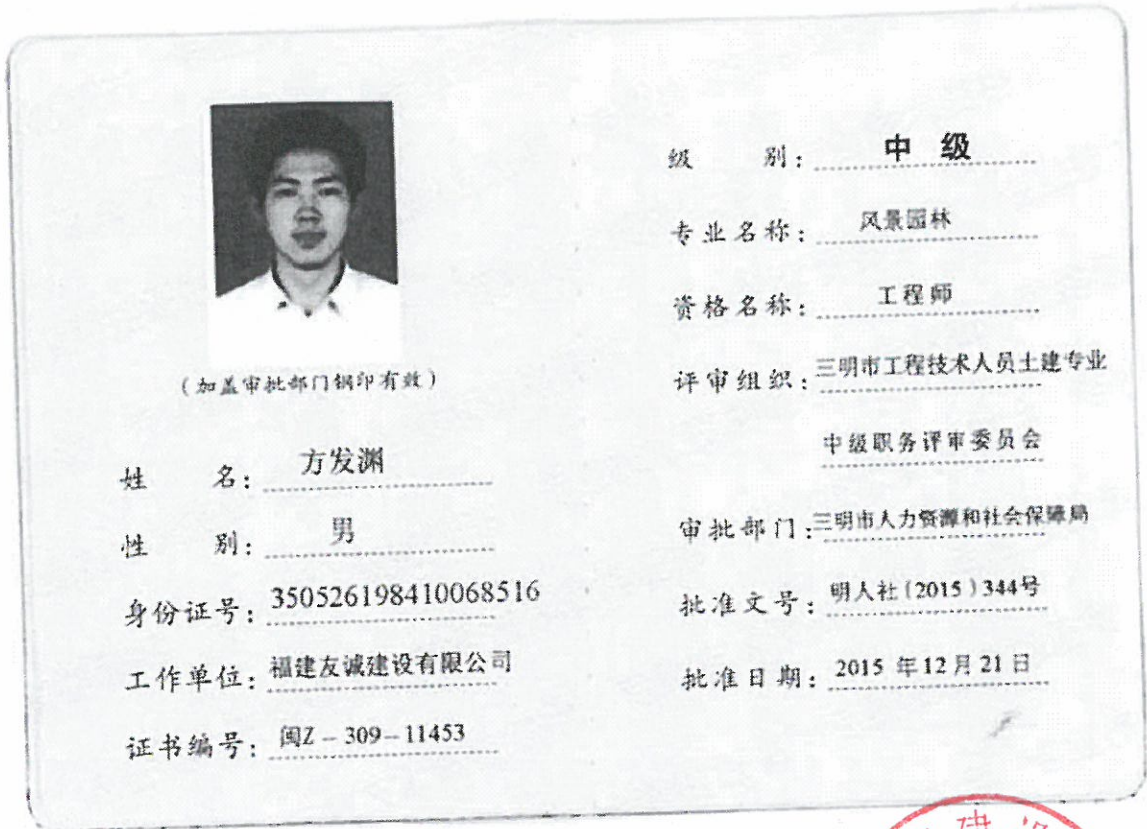 (加盖审批部门钢印有效)
姓 名: 方发渊
性 别: 男
身份证号: 350526198410068516
工作单位: 福建友诚建设有限公司
证书编号: 闽Z-309-11453
级 别: 中 级
专业名称: 风景园林
资格名称: 工程师
评审组织: 三明市工程技术人员土建专业
中级职务评审委员会
审批部门: 三明市人力资源和社会保障局
批准文号: 明人社(2015)344号
批准日期: 2015 年 12 月 21 日
建设